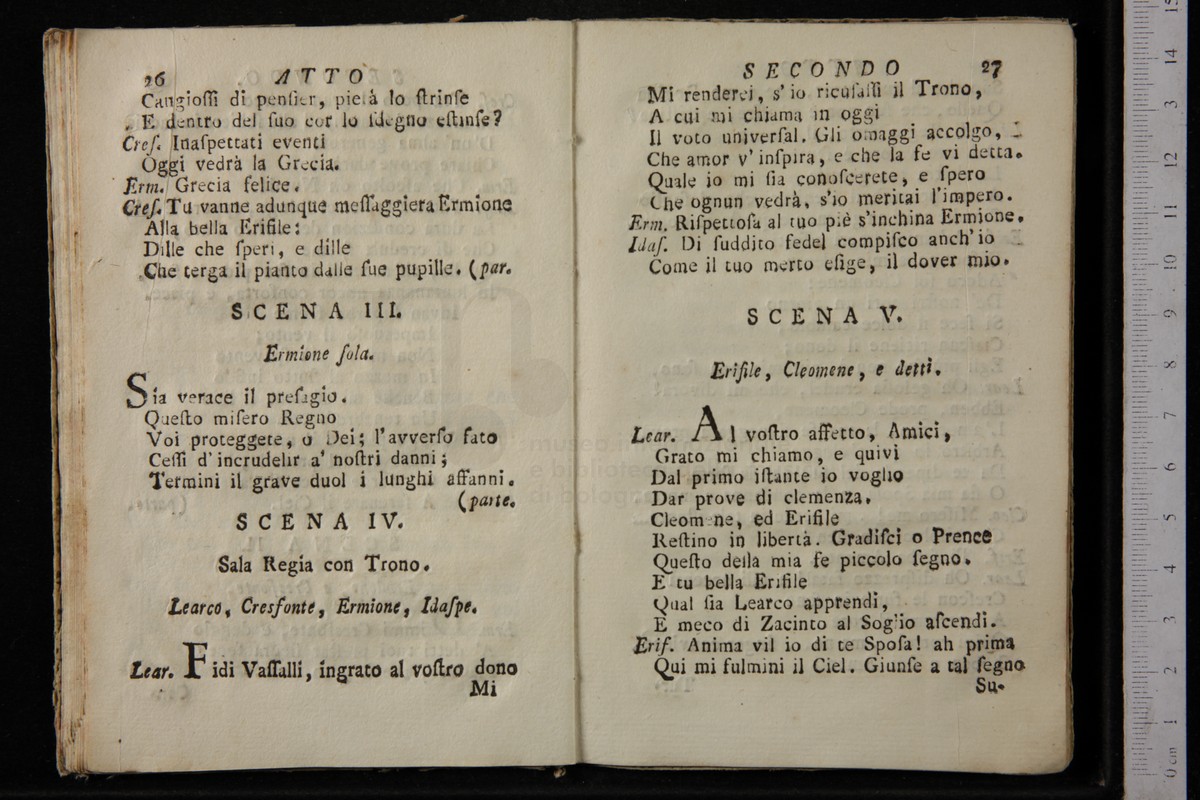 26 ATTO
Cangioſſi di penſier, pietà lo ſtrinſe
E dentro del ſuo cor lo ſdegno eſtinſe?
Creſ. Inaſpettati eventi
Oggi vedrà la Grecia.
Erm. Grecia felice.
Creſ. Tu vanne adunque meſſaggiera Ermione
Alla bella Erifile:
Dille che ſperi, e dille
Che terga il pianto dalle ſue pupille. (par.
SCENA III.
Ermione ſola.
Sia verace il preſagio.
Queſto miſero Regno
Voi proteggete, o Dei; l'avverſo fato
Ceſſi d'incrudelir a' noſtri danni;
Termini il grave duol i lunghi affanni.
(parte.
SCENA IV.
Sala Regia con Trono.
Learco, Cresfonte, Ermione, Idaſpe.
Lear. Fidi Vaſſalli, ingrato al voſtro dono
Mi
SECONDO 27
Mi renderei, s'io ricuſaſſi il Trono,
A cui mi chiama in oggi
Il voto univerſal. Gli omaggi accolgo,
Che amor v'inſpira, e che la fe vi detta.
Quale io mi ſia conoſcerete, e ſpero
Che ognun vedrà, s'io meritai l'impero.
Erm. Riſpettoſa al tuo piè s'inchina Ermione.
Idaſ. Di ſuddito fedel compiſco anch'io
Come il tuo merto eſige, il dover mio.
SCENA V.
Erifile, Cleomene, e detti.
Lear. Al voſtro affetto, Amici,
Grato mi chiamo, e quivi
Dal primo iſtante io voglio
Dar prove di clemenza.
Cleomene, ed Erifile
Reſtino in libertà. Gradiſci o Prence
Queſto della mia fe piccolo ſegno.
E tu bella Erifile
Qual ſia Learco apprendi,
E meco di Zacinto al Soglio aſcendi.
Erif. Anima vil io di te Spoſa! ah prima
Qui mi fulmini il Ciel. Giunſe a tal ſegno
Su-